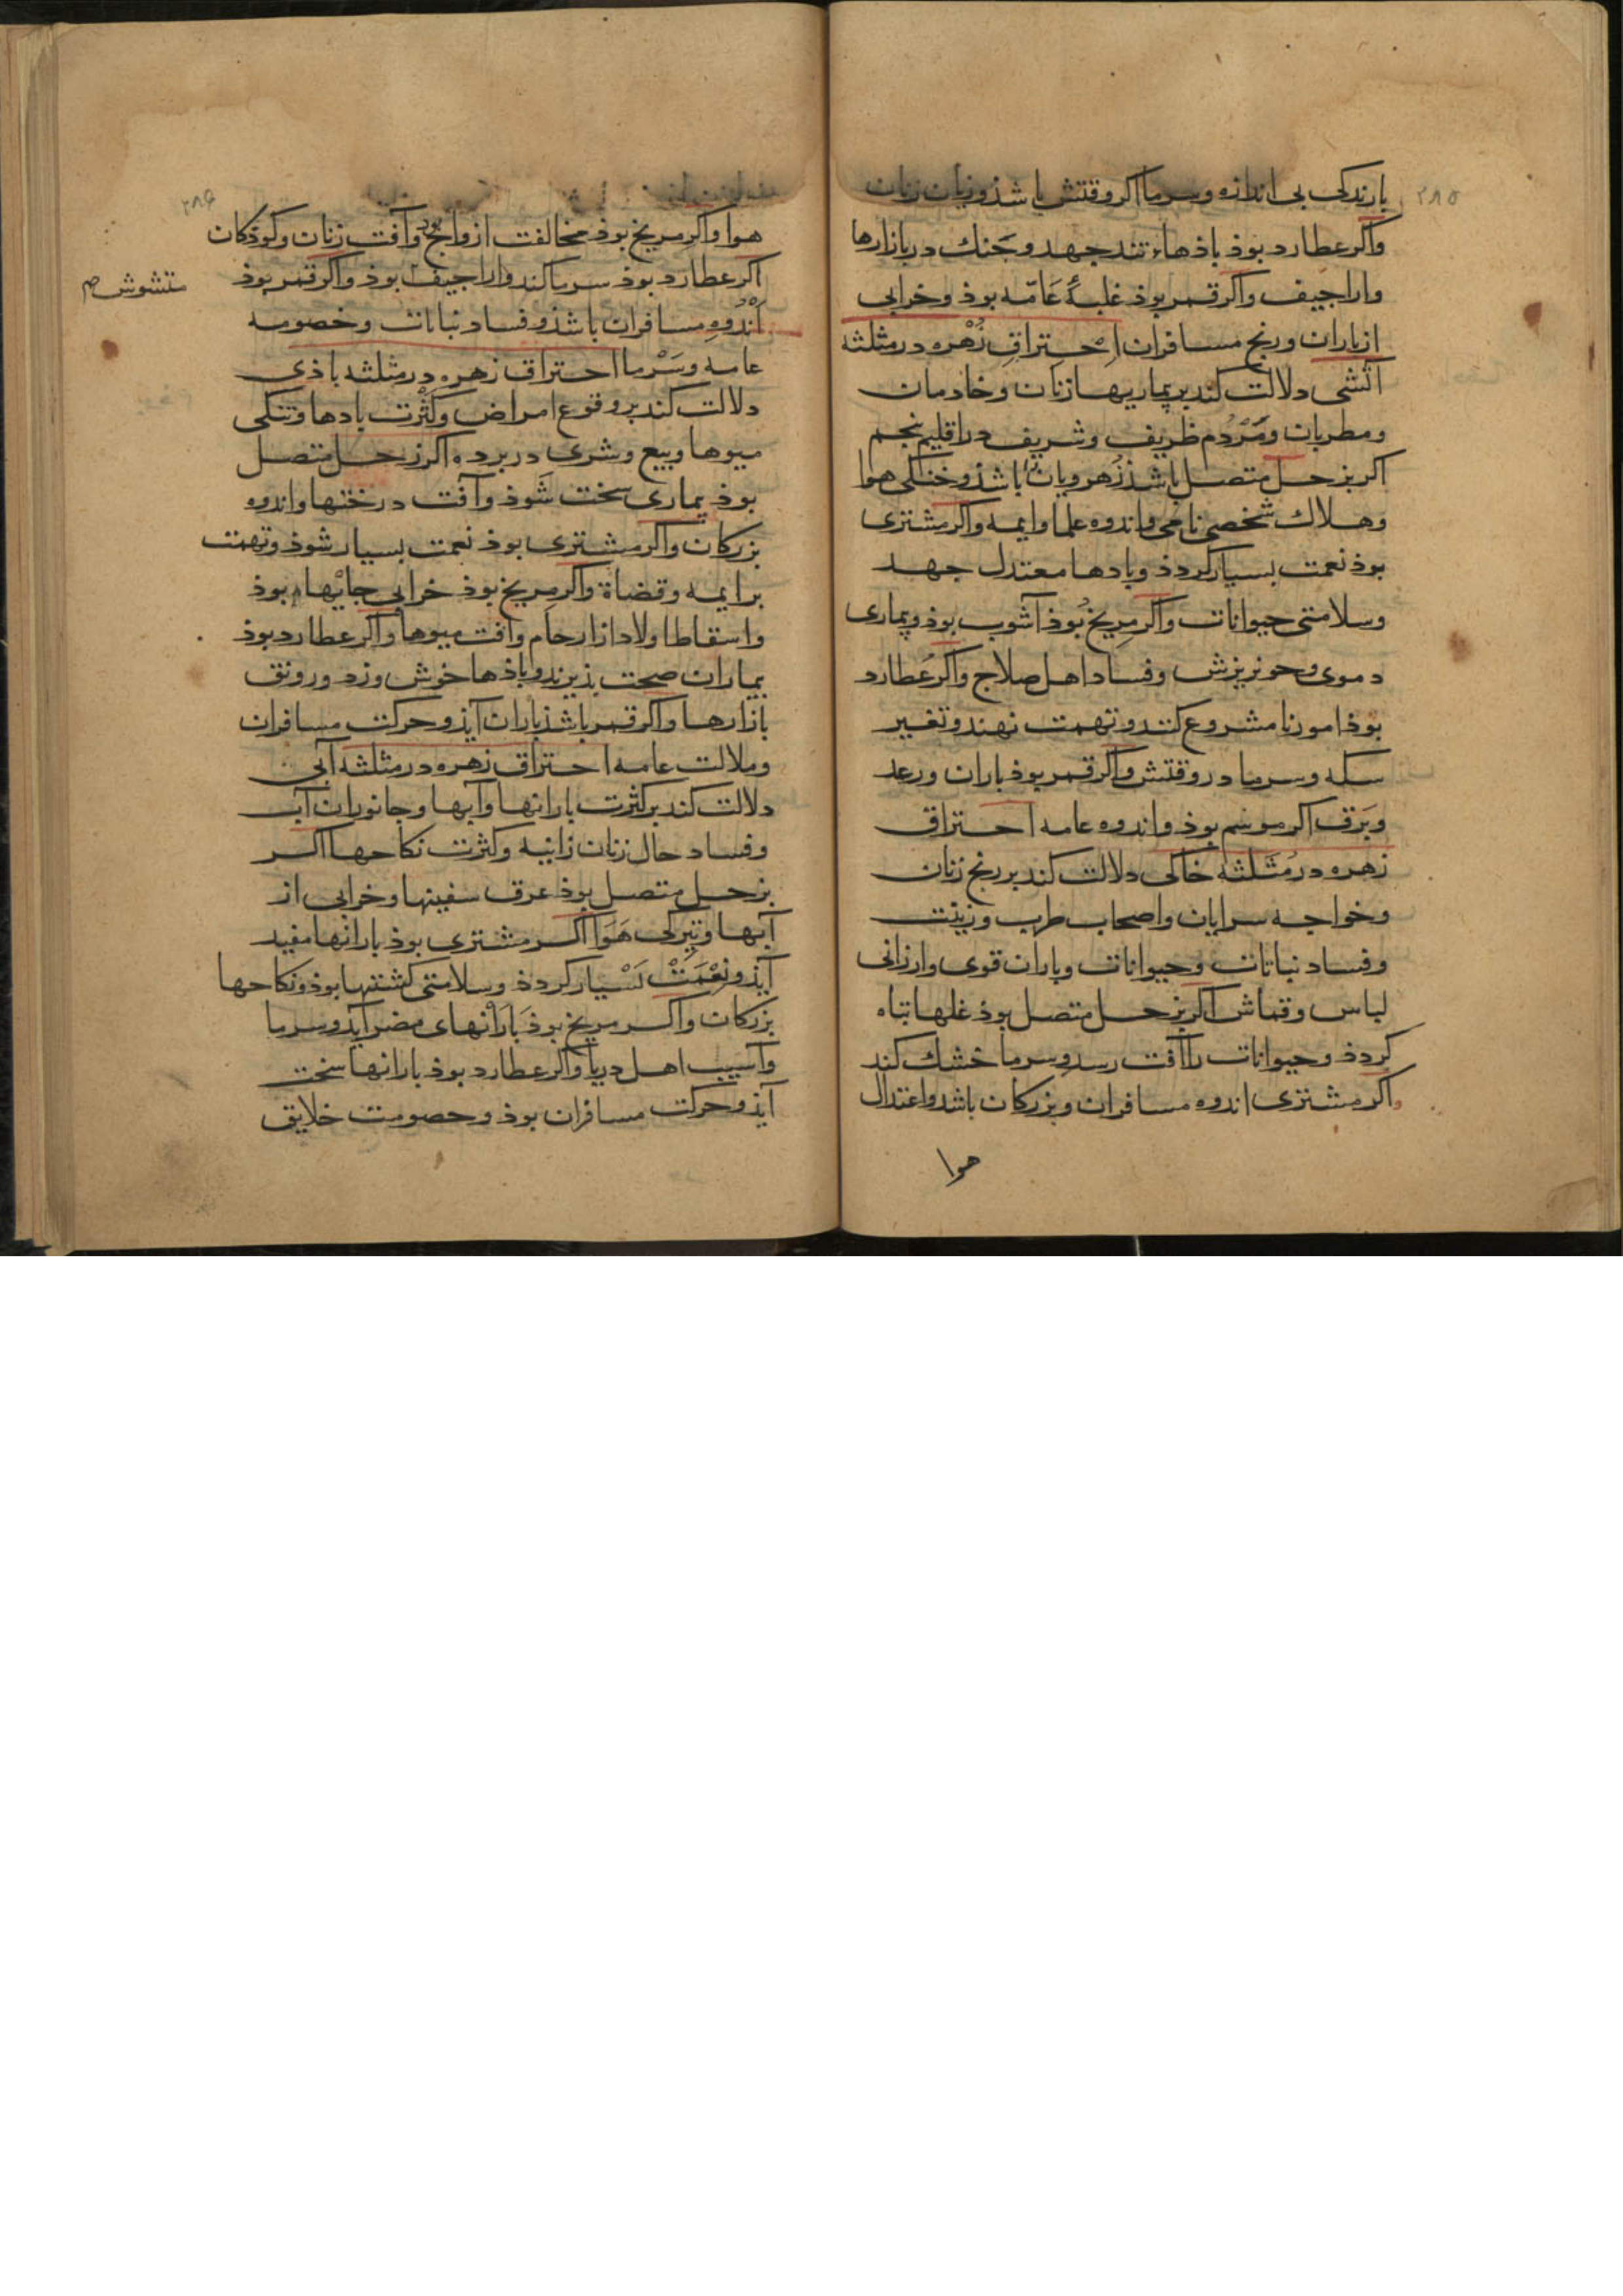 ۲۸۵
بارندکی بی اندازه و سرما اکر وقتش باشذ و زیان زنان
واکر عطارد بوذ باذهاء تند جهد و جنك در بازارها
واراجیف واکر قمر بوذ غلبهٔ عامّه بوذ و خرابی
از باران و رنج مسافران احتراقِ زُهْره در مثلثه
آتشی دلالت کند بر بیماریها از زنان و خادمان
و مطربان و مَرْدُم ظریف و شریف در اقلیم پنجم
اکر بزحل متصل باشذ زهرو یان باشذ و خنکی هوا
و هلاك شخصی نامی و اندوه علما و ایمه واکر مشتری
بوذ نعمت بسیار کردذ و بادها معتدل جهد
و سلامتی حیوانات واکر مریخ بُوذ آشوب بوذ و بیماری
دموی و خونریزش و فساد اهل صلاح واکر عطارد
بوذ امور نامشروع کنند و تهمت نهند و تغییر
سکه و سرما در وقتش واکر قمر بوذ باران و رعد
و بَرق اکر موسم بوذ و اندوه عامه احتراق
زهره در مُثَلثه خاکی دلالت کند بر رنج زنان
و خواجه سرایان و اصحاب طرب و زینت
و فساد نباتات و حیوانات و باران قوی و ارزانی
لباس و قماش اکر بزحل متصل بوذ غلها تباه
کردذ و حیوانات را آفت رسد و سرما خشك کند
واکر مشتری اندوه مسافران و بزرکان باشد و اعتدال
هوا
۲۸۶
هوا واکر مریخ بوذ مخالفت ازواج بود و آفت زنان و کوذکان
اکر عطارد بوذ سرما کند و اراجیف بوذ واکر قمر بوذ
متشوش م
اَنْدُوهِ مسافران باشذ و فساد نباتات و خصومه
عامه و سَرْما احتراق زهره در مثلثه باذی
دلالت کند بر وقوع امراض و کَثْرت بادها و تنکی
میوها و بیع و شری در برده اکر زحل متصل
بوذ بیماری سخت شَوذ و آفت درختها و اندوه
بزرکان واکر مشتری بوذ نعمت بسیار شوذ و تهمت
بر ایمه و قضاة واکر مریخ بوذ خرابی جایْها بوذ
و اسقاط اولاد از ارحام و آفت میوها واکر عطارد بوذ
بیماران صحت بذیرند و باذها خوش وزد و رونق
بازارها واکر قمر باشذ باران آیذ و حرکت مسافران
و ملالت عامه احتراق زهره در مثلثه آبی
دلالت کند بر کثرت بارانها و آبها و جانوران آب
و فساد حال زنان زانیه و کثرت نکاحها اکر
بزحل متصل بوذ غرق سفینها و خرابی از
آبها و تیرکی هَوَا اکر مشتری بوذ بارانها مفید
آیذ و نِعْمَتْ بَسْیار کردذ و سلامتی کشتیها بوذ و نکاحها
بزرکان واکر مریخ بوذ بَارَانْهای مضر آید و سرما
و آسیب اهل دریا واکر عطارد بوذ بارانها سخت
آیذ و حرکت مسافران بوذ و خصومت خلایق